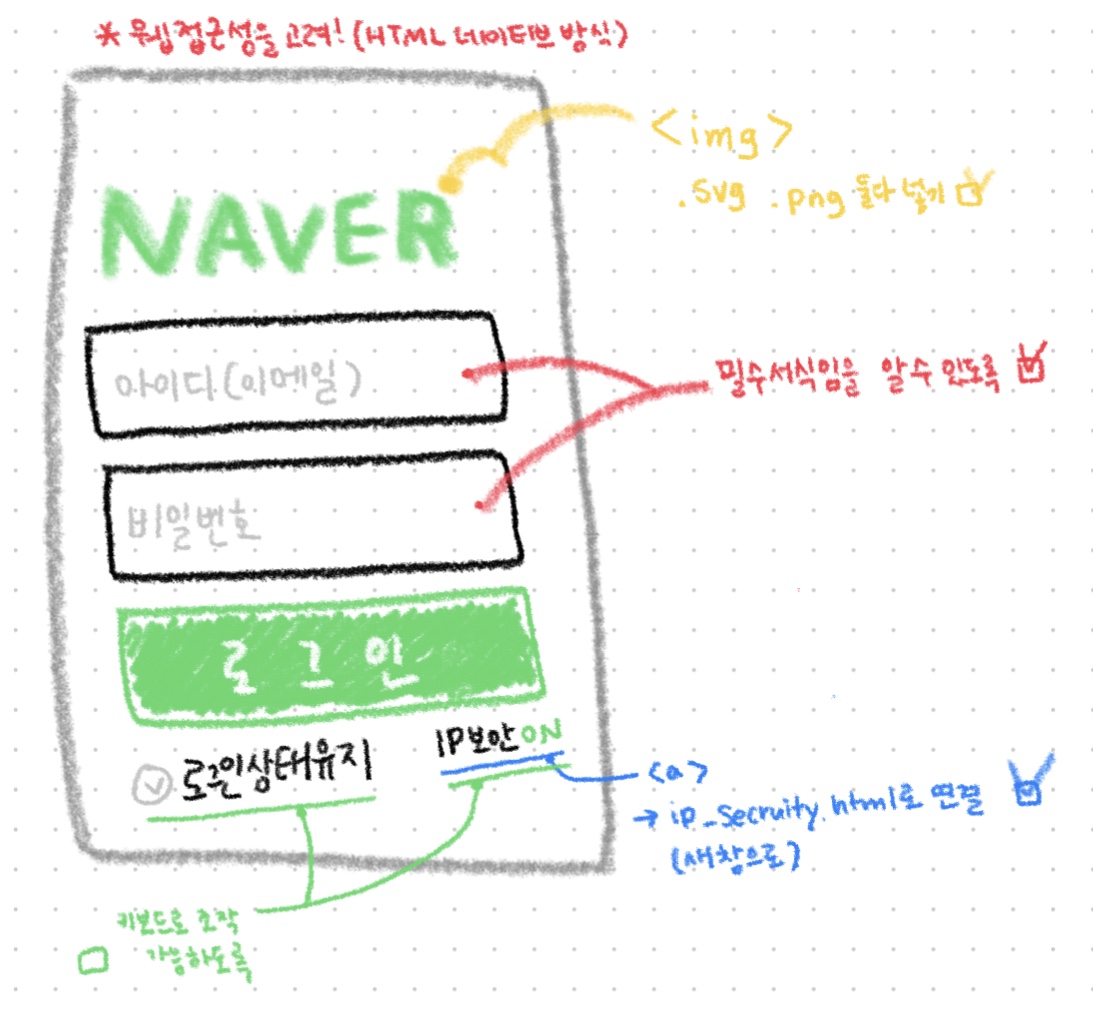 * 웹접근성을 고려! (HTML 네이티브 방식)
<img>
.svg .png 둘다 넣기
NAVER
아이디(이메일)
필수서식임을 알 수 있도록
비밀번호
로그인
로그인상태유지
IP보안 ON
<a>
→ ip_Secruity.html로 연결
(새창으로)
키보드로 조작
가능하도록